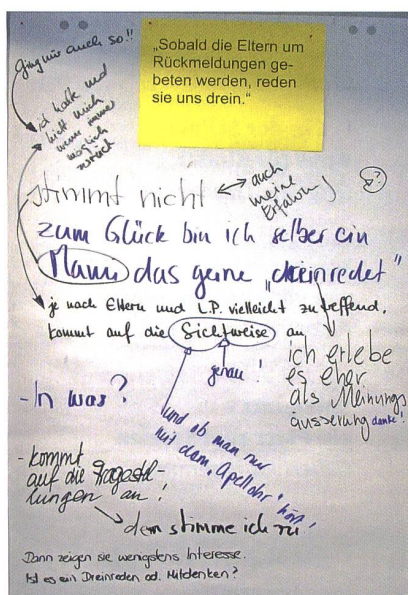 „Sobald die Eltern um
Rückmeldungen ge-
beten werden, reden
sie uns drein."
Ging mir auch so!!
ich halte und
hielt mich
wenn immer
möglich
zurück
stimmt nicht
auch
meine
zum Glück bin ich selber ein
Mami das gerne „dreinredet"
je nach Eltern und L.P. vielleicht zutreffend.
kommt auf die Sichtweise an
genau!
ich erlebe
es eher
als Meinungs
äusserung danke!
- In was?
und ob man nur
mit dem „Apellohr" hört!
- kommt
auf die Fragestel-
lungen an!
dem stimme ich zu
Dann zeigen sie wenigstens Interesse.
Ist es ein Dreinreden od. Mitdenken?